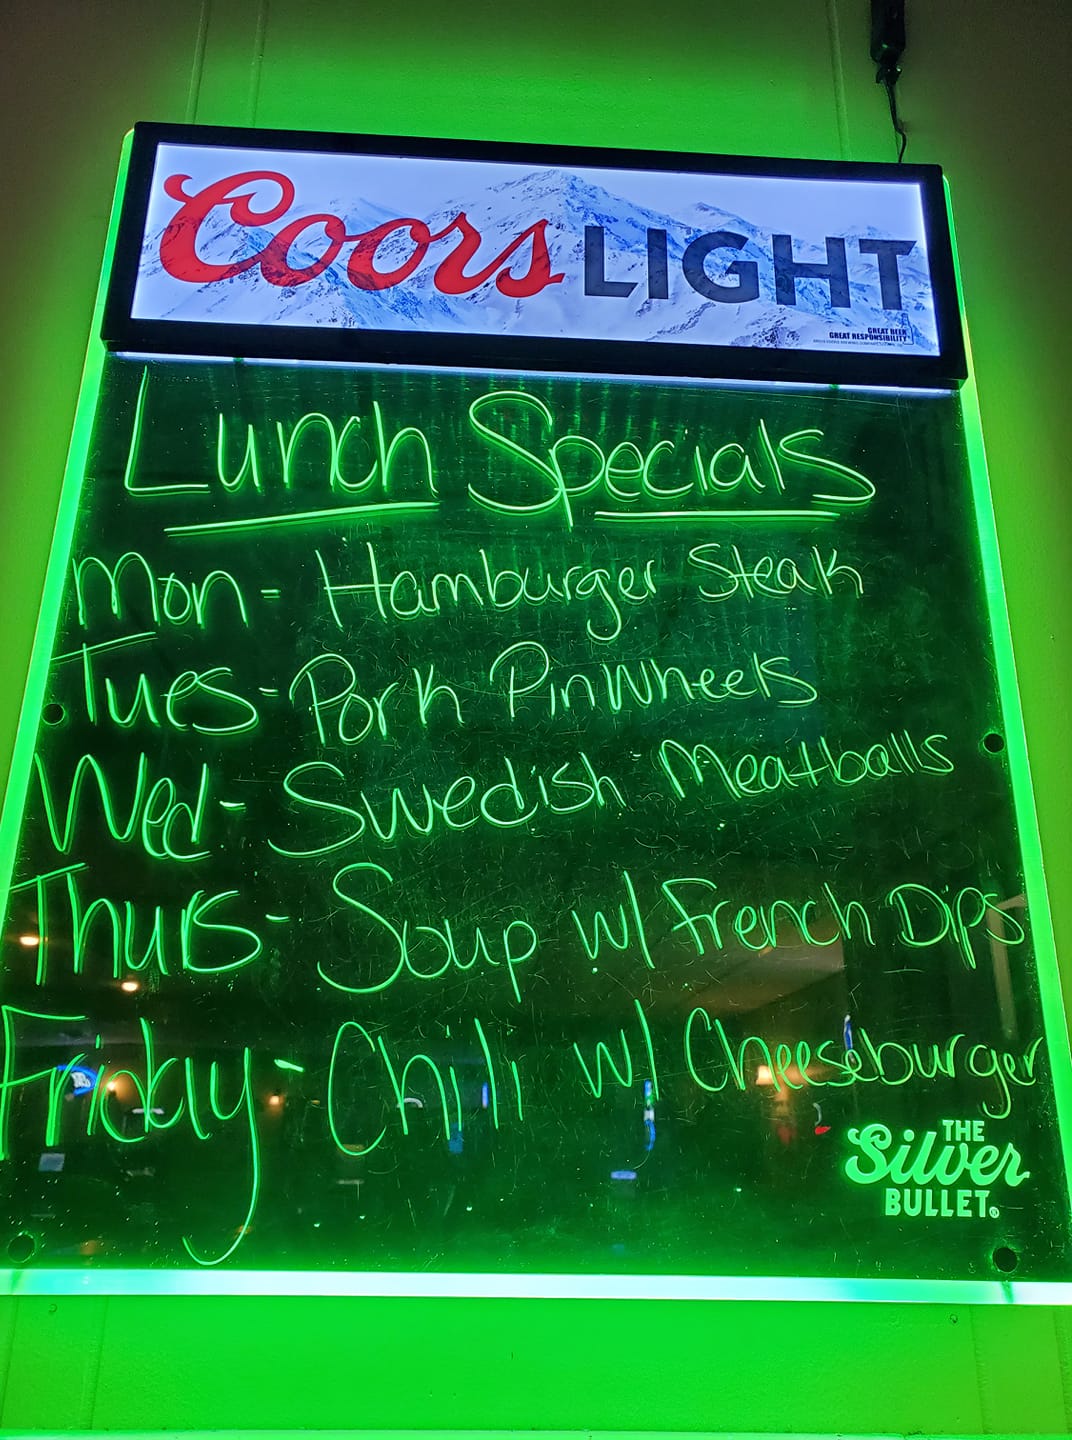 Coors LIGHT
GREAT BEER
GREAT RESPONSIBILITY
Lunch Specials
Mon - Hamburger Steak
Tues - Pork Pinwheels
Wed - Swedish Meatballs
Thurs - Soup w/ French Dips
Friday - Chili w/ Cheeseburger
THE
Silver
BULLET.